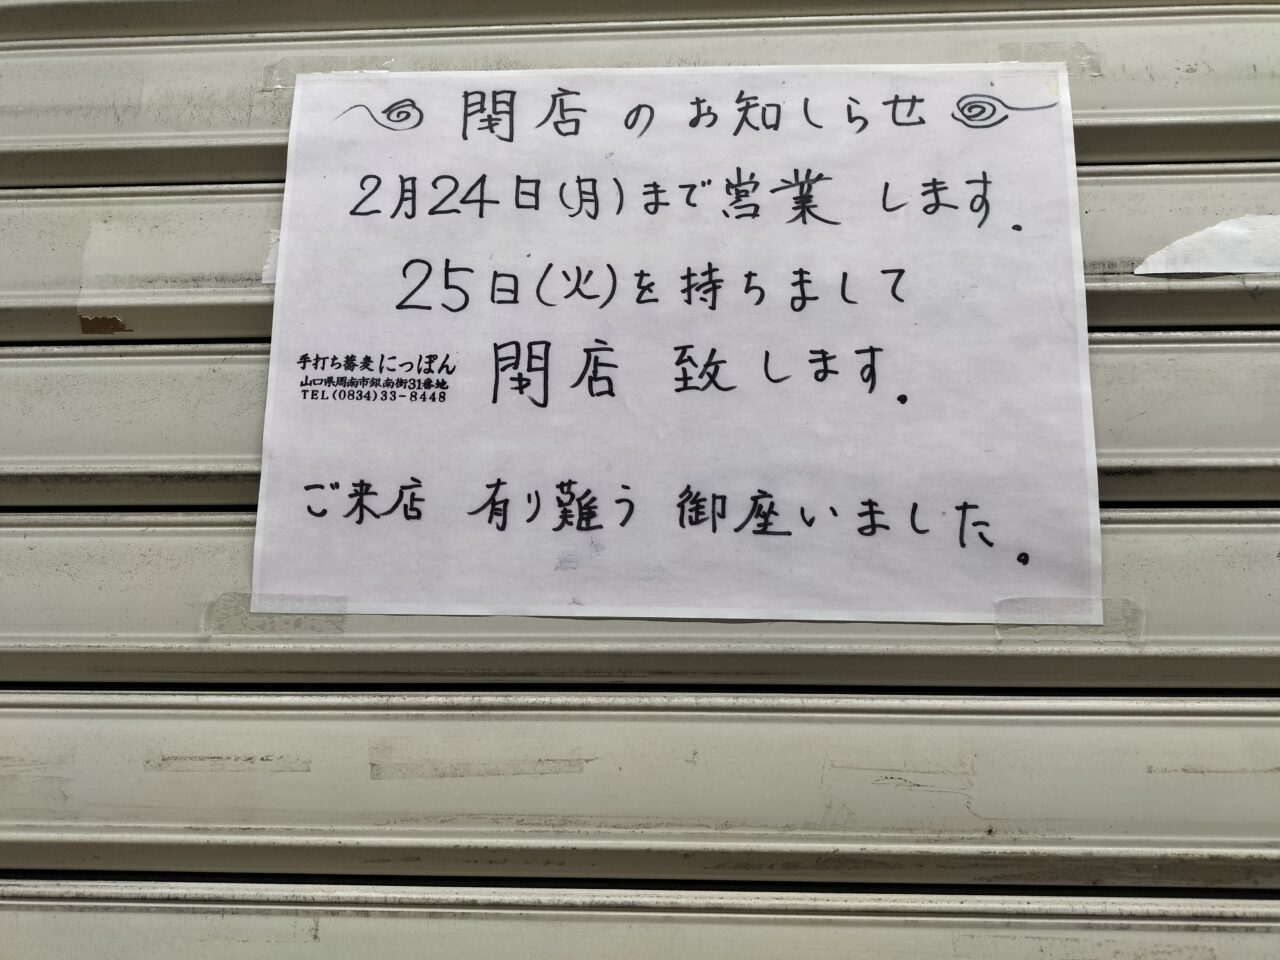 閉店のお知しらせ
2月24日(月)まで営業します.
25日(火)を持ちまして
閉店致します.
手打ち蕎麦にっぽん
山口県周南市銀南街31番地
TEL(0834)33-8448
ご来店 有り難う 御座いました.